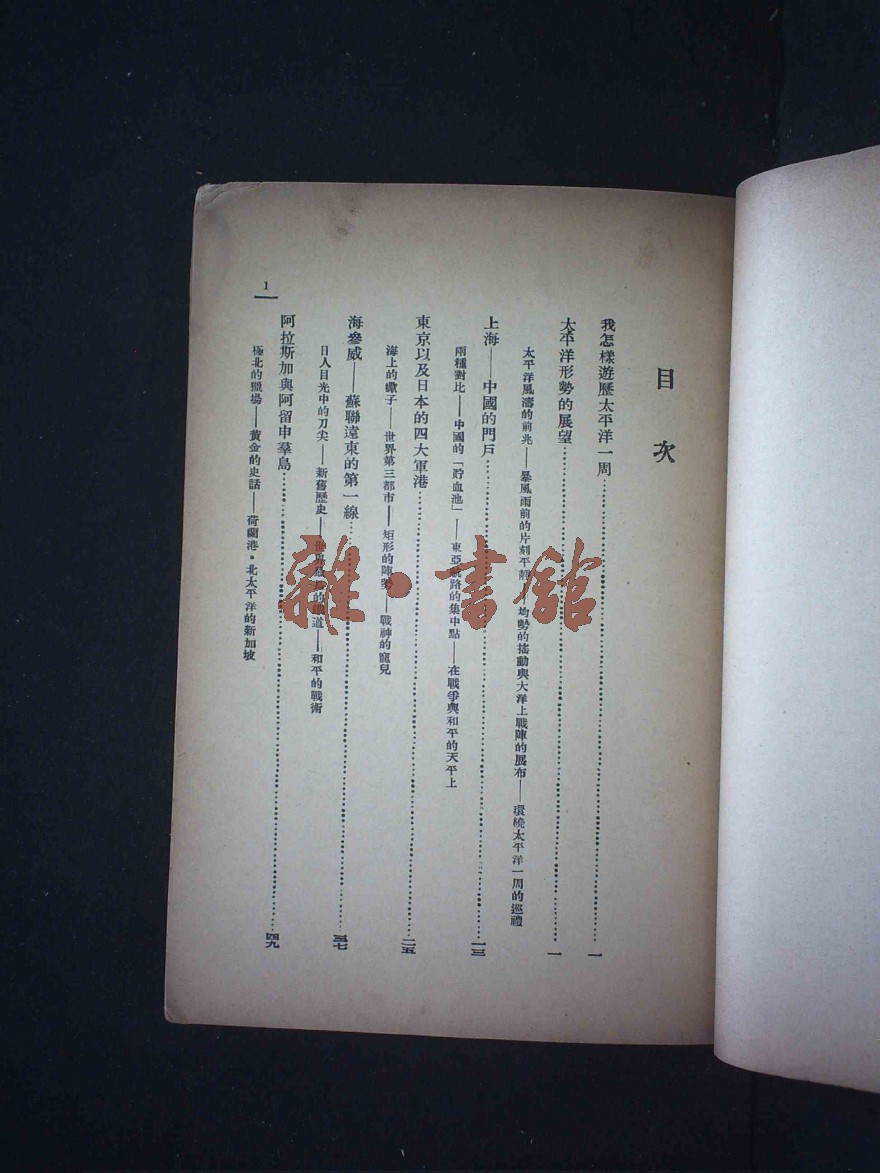 目次
我怎樣遊歷太平洋一周……一
太平洋形勢的展望……一
太平洋風濤的前兆——暴風雨前的片刻平靜——均勢的搖動與大洋上戰陣的展布——環繞太平洋一周的巡禮
上海——中國的門戶……一三
兩種對比——中國的「貯血池」——東亞航路的集中點——在戰爭與和平的天平上
東京以及日本的四大軍港……二五
海上的驕子——世界第三都市——矩形的陣勢——戰神的寵兒
海參威——蘇聯遠東的第一線……三七
日人目光中的刀尖——新舊歷史——世界最長的鐵道——和平的戰術
阿拉斯加與阿留申羣島……四九
極北的獵場——黃金的史話——荷蘭港·北太平洋的新加坡
1
雜·書館